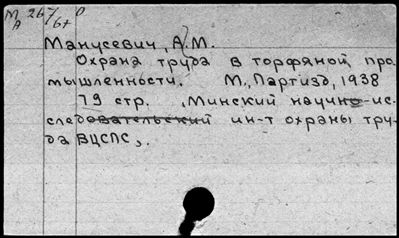 М 267/
А 6т
Манусевич, А.М.
Охрана труда в торфяной про
мышленности. М., Партизд, 1938
79 стр. (Минский научно-ис-
следовательский ин-т охраны тру-
да ВЦСПС).